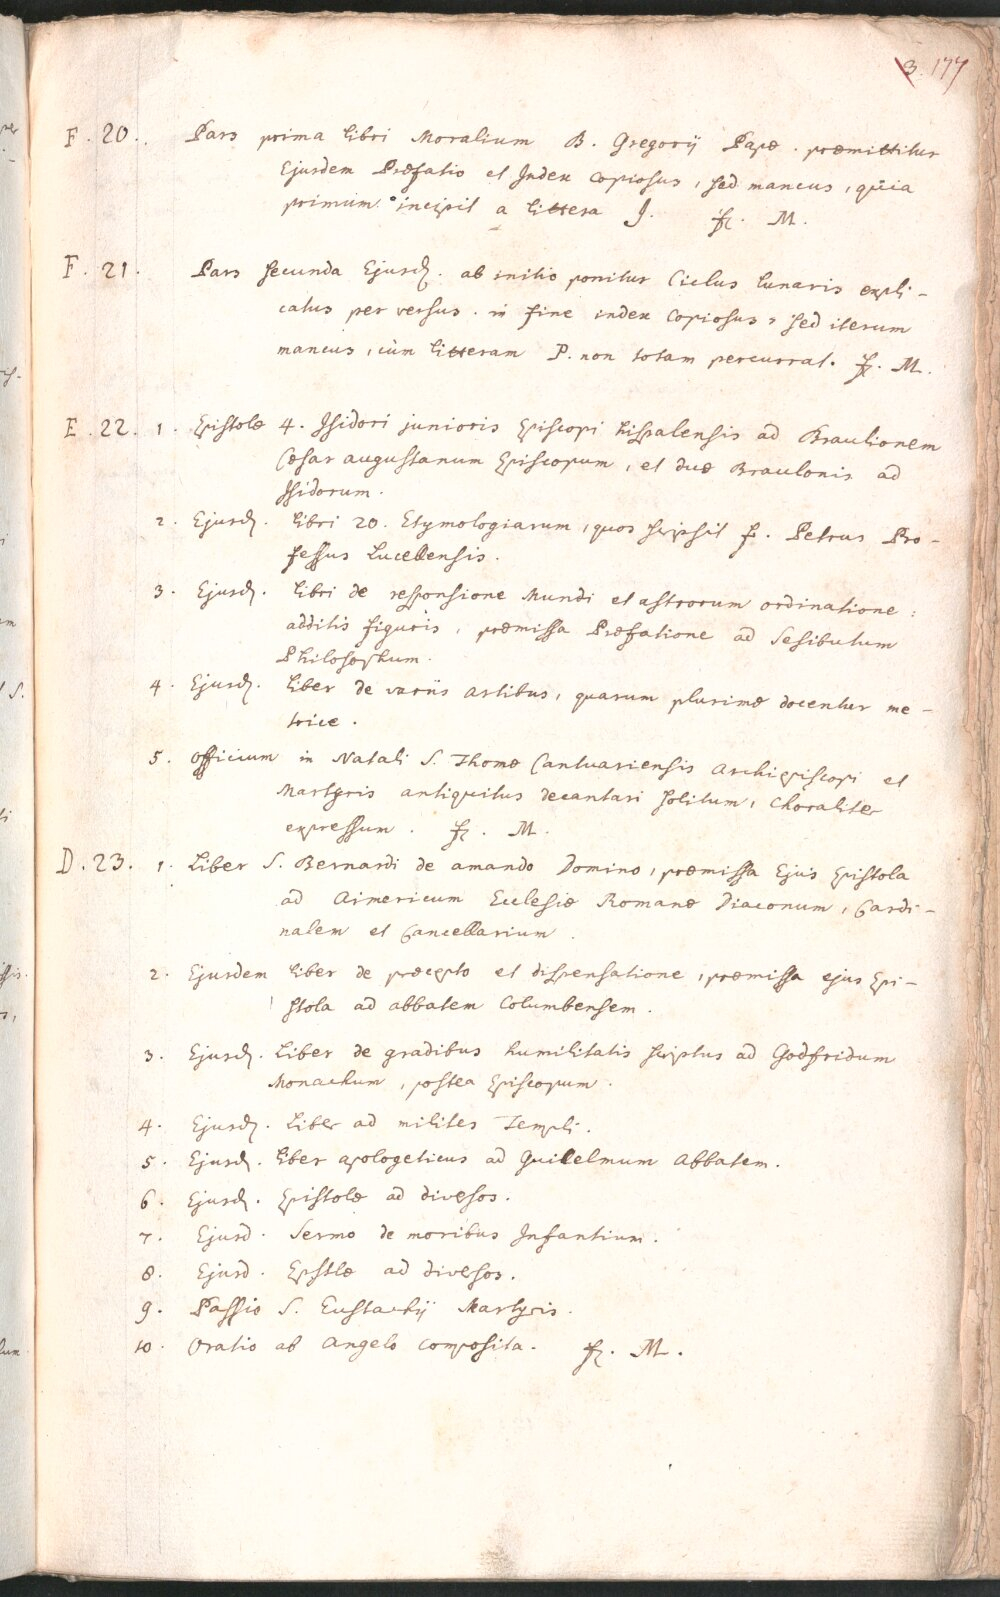 3. 177
F. 20. Pars prima libri Moralium B. Gregorij Papæ. præmittitur
Ejusdem Præfatio et Index copiosus, sed mancus, quia
primum incipit a littera J. fz. M.
F. 21. Pars secunda Ejusd. ab initio ponitur Ciclus lunaris expli-
catus per versus. in fine index copiosus, sed iterum
mancus, cùm litteram P. non totam percurrat. fz. M.
E. 22. 1. Epistolæ 4. Isidori junioris Episcopi hispalensis ad Braulionem
Cæsar augustanum Episcopum, et duæ Braulonis ad
Isidorum.
2. Ejusd. libri 20. Etymologiarum, quos scripsit f. Petrus Pro-
fessus Lucellensis.
3. Ejusd. libri de responsione Mundi et astrorum ordinatione:
additis figuris, præmissa Præfatione ad Sesibutum
Philosophum.
4. Ejusd. liber de variis artibus, quarum plurimæ docentur me-
trice.
5. Officium in Natali S. Thomæ Cantuariensis Archiepiscopi et
Martyris antiquitus decantari solitum, choraliter
expressum. fz. M.
D. 23. 1. Liber S. Bernardi de amando Domino, præmissa Ejus Epistola
ad Aimericum Ecclesiæ Romanæ Diaconum, Cardi-
nalem et Cancellarium.
2. Ejusdem liber de præcepto et dispensatione, præmissa ejus Epi-
stola ad abbatem Columbensem.
3. Ejusd. Liber de gradibus humilitatis scriptus ad Godfridum
Monachum, postea Episcopum.
4. Ejusd. Liber ad milites Templi.
5. Ejusd. liber apologeticus ad Guilelmum Abbatem.
6. Ejusd. Epistolæ ad diversos.
7. Ejusd. Sermo de moribus Infantium.
8. Ejusd. Epstlæ ad diversos.
9. Passio S. Eustachij Martyris.
10. Oratio ab Angelo composita. fz. M.